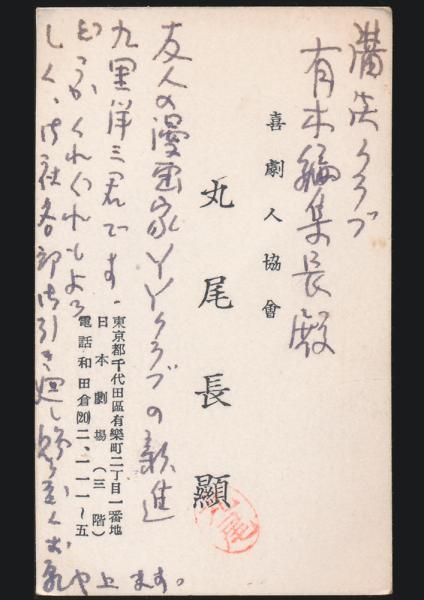 講談クラブ
有木編集長殿
喜劇人協會
丸尾長顯
友人の漫画家YYクラブの新進
九里洋三君です。
どうかくれぐれもよろ
しく、御社各部御引き廻し
上げます。
東京都千代田區有樂町二丁目一番地
日本劇場（三階）
電話和田倉⒇二、一一一～五